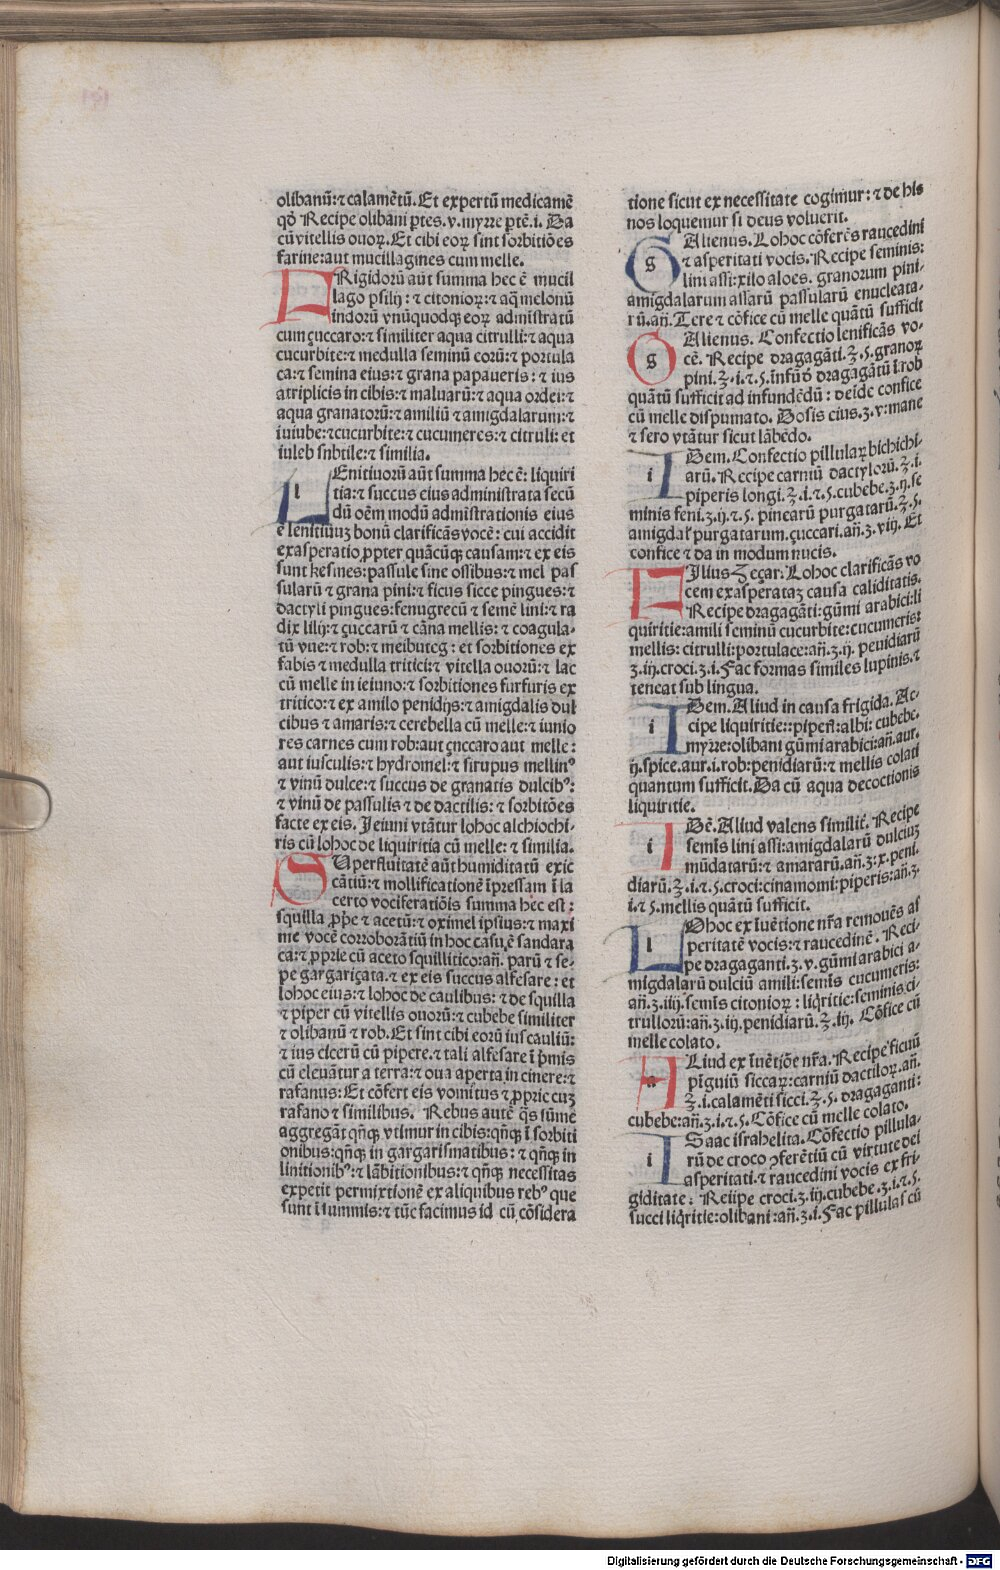 olibanū:⁊ calamētū. Et expertū medicamē
qđ Recipe olibani ꝑtes.v.myrre ꝑtē.i. Da
cū vitellis ouoꝝ. Et cibi eoꝝ sint sorbitiōes
farine:aut mucillagines cum melle.
FRigidorū aūt summa hec ē mucil
lago psilij: ⁊ citonioꝝ:⁊ aq̄ melonū
indorū vnūquodqꝫ eoꝝ administratū
cum çuccaro:⁊ similiter aqua citrulli:⁊ aqua
cucurbite:⁊ medulla seminū eorū:⁊ portula
ca:⁊ semina eius:⁊ grana papaueris: ⁊ ius
atriplicis in cibis:⁊ maluarū:⁊ aqua ordei:⁊
aqua granatorū:⁊ amiliū ⁊ amigdalarum:⁊
iuiube:⁊ cucurbite:⁊ cucumeres:⁊ citruli: et
iuleb snbtile:⁊ similia.
l LEnitiuorū aūt summa hec ē: liquiri
tia:⁊ succus eius administrata secū
dū oēm modū admistrationis eius
ē lenitiūuꝫ bonū clarificās vocē: cui accidit
exasperatio ꝓpter quācūqꝫ causam:⁊ ex eis
sunt kesmes:passule sine ossibus:⁊ mel pas
sularū ⁊ grana pini:⁊ ficus sicce pingues:⁊
dactyli pingues:fenugrecū ⁊ semē lini:⁊ ra
dix lilij:⁊ çuccarū ⁊ cāna mellis: ⁊ coagula-
tū vue:⁊ rob:⁊ meibuteg: et sorbitiones ex
fabis ⁊ medulla tritici:⁊ vitella ouorū:⁊ lac
cū melle in ieiuno:⁊ sorbitiones furfuris ex
tritico:⁊ ex amilo penidijs:⁊ amigdalis dul
cibus ⁊ amaris:⁊ cerebella cū melle:⁊ iunio
res carnes cum rob:aut çnccaro aut melle:
aut iusculis:⁊ hydromel:⁊ sirupus mellinꝰ
⁊ vinū dulce:⁊ succus de granatis dulcibꝰ:
⁊ vinū de passulis ⁊ de dactilis: ⁊ sorbitōes
facte ex eis. Jeiuni vtātur lohoc alchiochi-
ris cū lohoc de liquiritia cū melle: ⁊ similia.
SUperfluitatē aūt humiditatū exic
cātiū:⁊ mollificationē īpressam ī la
certo vociferatiōis summa hec est:
squilla ꝓp̄e ⁊ acetū:⁊ oximel ipsius:⁊ maxi
me vocē corroborātiū in hoc casu ē sandara
ca:⁊ ꝓprie cū aceto squillitico:añ. parū ⁊ se-
pe gargariçata.⁊ ex eis succus alfesare: et
lohoc eius:⁊ lohoc de caulibus: ⁊ de squilla
⁊ piper cū vitellis ouorū:⁊ cubebe similiter
⁊ olibanū ⁊ rob. Et sint cibi eorū ius cauliū:
⁊ ius cicerū cū pipere.⁊ tali alfesare ī p̄mis
cū eleuātur a terra:⁊ oua aperta in cinere:⁊
rafanus: Et cōfert eis vomitus ⁊ ꝓprie cuꝫ
rafano ⁊ similibus. Rebus autē q̄s sūme
aggregāt qn̄qꝫ vtimur in cibis:qn̄qꝫ ī sorbiti
onibus:qn̄qꝫ in gargarismatibus: ⁊ qn̄qꝫ in
linitionibꝰ:⁊ lābitionibus:⁊ qn̄qꝫ necessitas
expetit permixtionē ex aliquibus rebꝰ que
sunt ī summis:⁊ tūc facimus id cū cōsidera
tione sicut ex necessitate cogimur: ⁊ de his
nos loquemur si deus voluerit.
g GAlienus. Lohoc cōferēs raucedini
⁊ asperitati vocis. Recipe seminis:
lini assi:xilo aloes. granorum pini-
amigdalarum assarū passularū enucleata-
rū.añ. Tere ⁊ cōfice cū melle quātū sufficit
g GAlienus. Confectio lenificās vo-
cē. Recipe dragagāti.ʒ.ƽ.granoꝝ
pini.ʒ.i.⁊.ƽ.īfūđ dragagātū ī rob
quātū sufficit ad infundēdū: deīde confice
cū melle dispumato. Dosis eius.ʒ.v:mane
⁊ sero vtātur sicut lābēdo.
i IDem. Confectio pillulaꝝ bichichi-
arū. Recipe carniū dactylorū.ʒ.i.
piperis longi.ʒ.i.⁊.ƽ.cubebe.ʒ.ij.se
minis feni.ʒ.ij.⁊.ƽ. pinearū purgatarū.ʒ.ƽ.
amigdal̄ purgatarum.çuccari.añ.ʒ.viij. Et
confice ⁊ da in modum nucis.
FIlius Zeçar. Lohoc clarificās vo
cem exasperataꝫ causa caliditatis.
Recipe dragagāti:gūmi arabici:li
quiritie:amili seminū cucurbite:cucumeris:
mellis: citrulli:portulace:añ.ʒ.ij. penidiarū
ʒ.iij.croci.ʒ.i. Fac formas similes lupinis.⁊
teneat sub lingua.
i IDem. Aliud in causa frigida. Ac-
cipe liquiritie::piperl:albi: cubebe.
myrre:olibani gūmi arabici:añ.aur.
ij.spice.aur.i.rob:penidiarū:⁊ mellis colati
quantum sufficit. Da cū aqua decoctionis
liquiritie.
i IDē. Aliud valens similit̄. Recipe
semīs lini assi:amigdalarū dulciuꝫ
mūdatarū:⁊ amararū.añ.ʒ.x.peni-
diarū.ʒ.i.⁊.ƽ.croci:cinamomi:piperis:añ.ʒ.
i.⁊ ƽ.mellis quātū sufficit.
l LOhoc ex īuētione nr̄a remouēs as
peritatē vocis:⁊ raucedinē. Reci-
pe dragaganti.ʒ.v.gūmi arabici a-
migdalarū dulciū amili:semīs cucumeris:
añ.ʒ.iiij.semīs citonioꝝ: liq̄ritie:seminis ci-
trullorū:añ.ʒ.iij.penidiarū.ʒ.iij. Cōfice cū
melle colato.
a ALiud ex īuētiōe nr̄a. Recipe ficuū
pīguiū siccaꝝ:carniū dactiloꝝ.añ.
ʒ.i.calamēti sicci.ʒ.ƽ. dragaganti:
cubebe:añ.ʒ.i.⁊.ƽ. Cōfice cū melle colato.
i ISaac israhelita. Cōfectio pillula-
rū de croco ꝯferētiū cū virtute dei
asperitati.⁊ raucedini vocis ex fri-
giditate: Reiipe croci.ʒ.iij.cubebe.ʒ.i.⁊.ƽ.
succi liq̄ritie:olibani:añ.ʒ.i. Fac pillulas cū
Digitalisierung gefördert durch die Deutsche Forschungsgemeinschaft - DFG